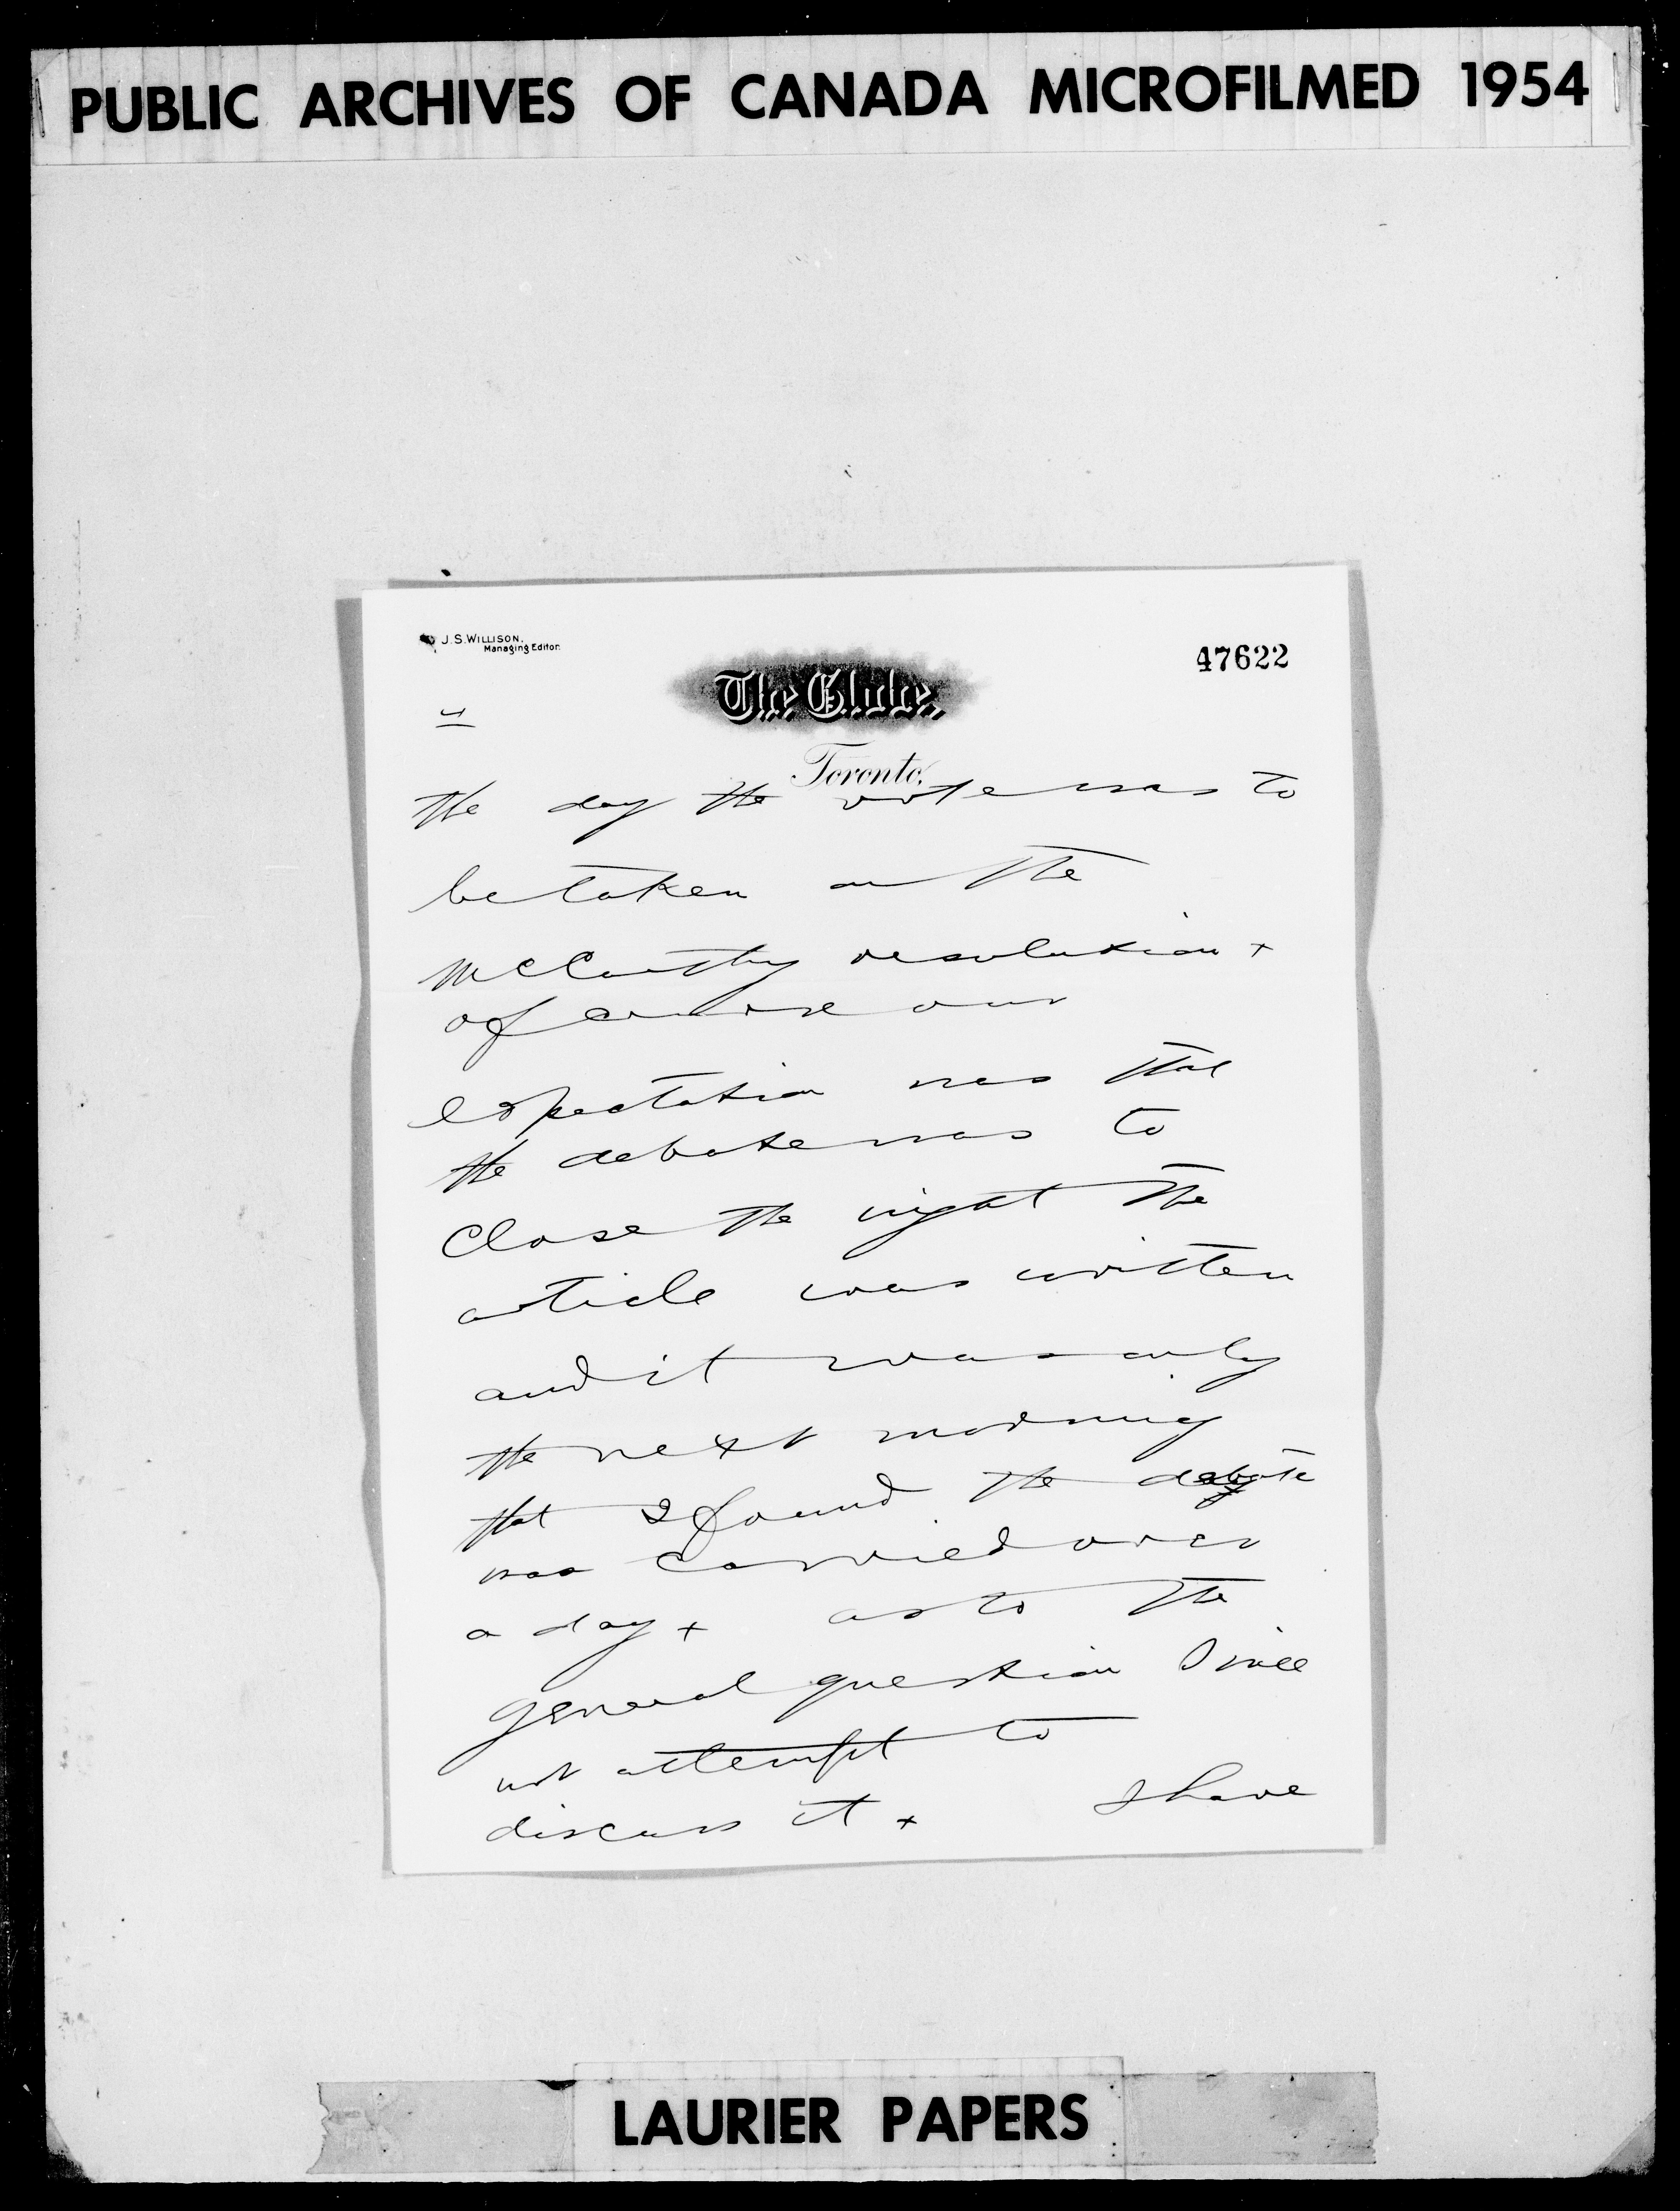 PUBLIC ARCHIVES OF CANADA MICROFILMED 1954
J. S. WILLISON.
Managing Editor.
47622
The Globe,
Toronto,
the day the vote was to
be taken on the
McCarthy resolution x
of course our
expectation was that
the debate was to
close the night the
article was written
and it was only
the next morning
that I found the debate
was carried over
a day x as to the
general question I will
not attempt to
discuss it x I have
LAURIER PAPERS